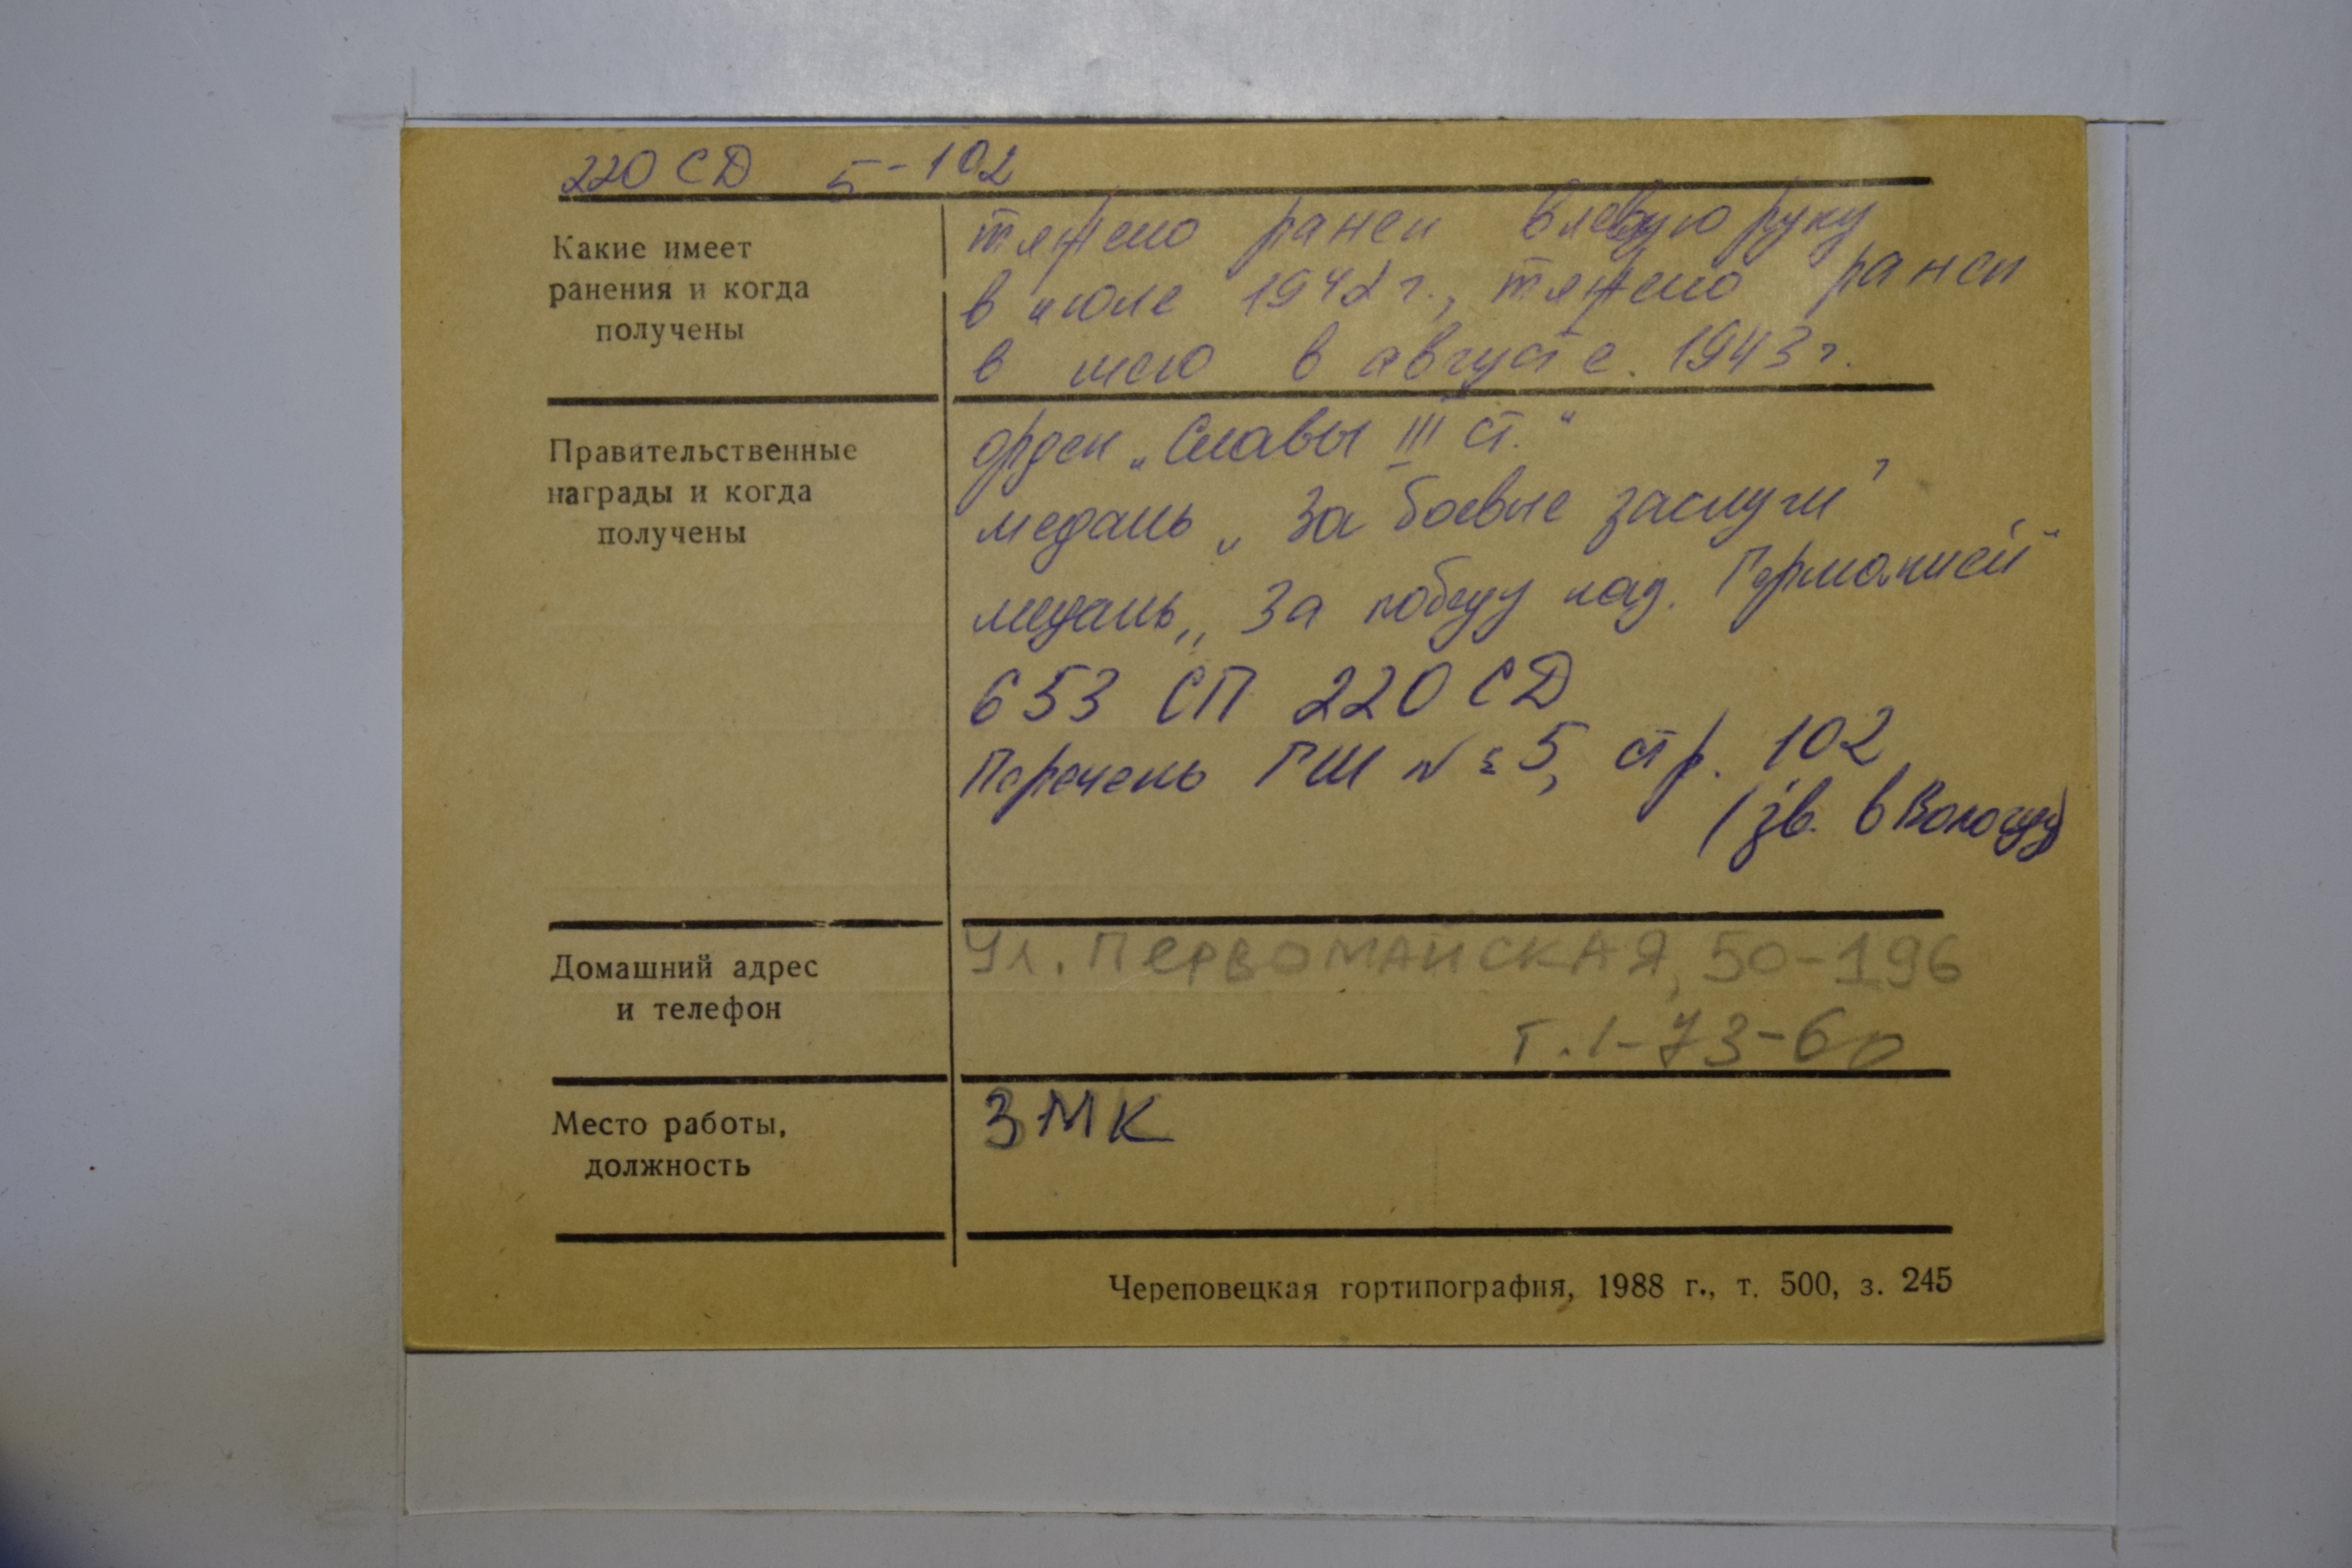 220 СД 5-102
Какие имеет
ранения и когда
получены
тяжело ранен в левую руку
в июле 1942 г., тяжело ранен
в шею в августе. 1943 г.
Правительственные
награды и когда
получены
орден „Славы III ст.“
медаль „За боевые заслуги"
медаль „За победу над. Германией“
653 СП 220 СД
Перечень ГШ № 5, стр. 102
(зв. в Вологду)
Домашний адрес
и телефон
Ул. ПЕРВОМАЙСКАЯ, 50-196
Т. 1-73-60
Место работы,
должность
ЗМК
Череповецкая гортипография, 1988 г., т. 500, з. 245